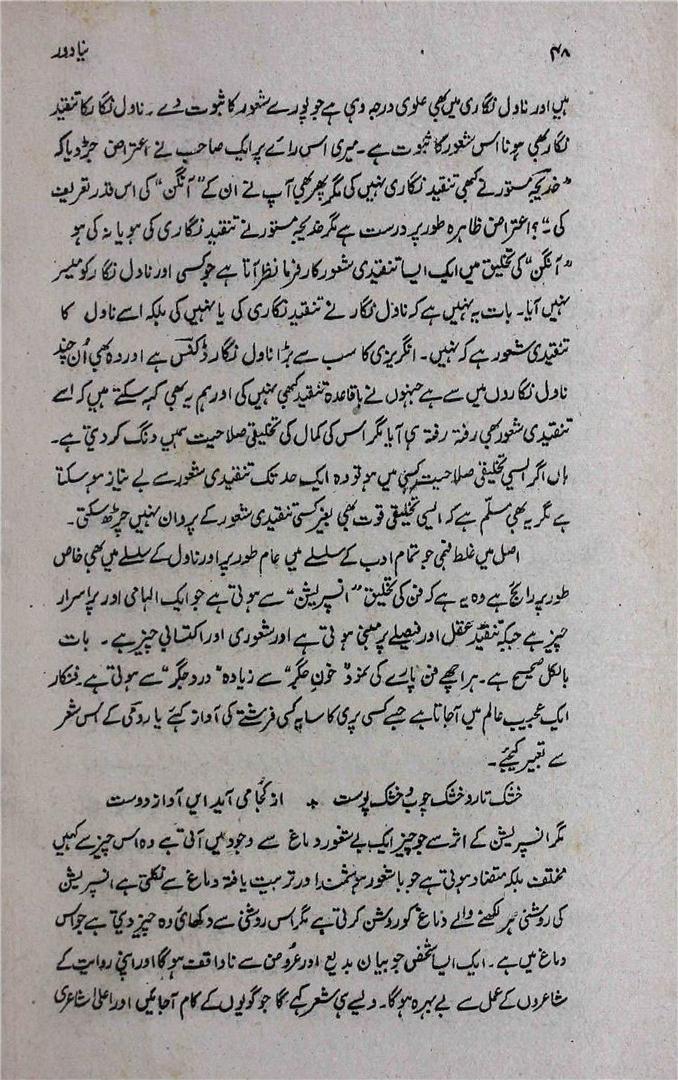 ۴۸ نیا دور
ہیں اور ناول نگاری میں بھی علوی درجہ وہی ہے جو پورے شعور کا ثبوت دے۔ ناول نگار کا تنقید
نگار بھی ہونا اس شعور کا ثبوت ہے۔ میری اس رائے پر ایک صاحب نے اعتراض جڑ دیا کہ
”خدیجہ مستور نے کبھی تنقید نگاری نہیں کی مگر پھر بھی آپ نے ان کے ”آنگن“ کی اس قدر تعریف
کی۔“؟ اعتراض ظاہرہ طور پر درست ہے مگر خدیجہ مستور نے تنقید نگاری کی ہو یا نہ کی ہو
”آنگن“ کی تخلیق میں ایک ایسا تنقیدی شعور کارفرما نظر آتا ہے جو کسی اور ناول نگار کو میسر
نہیں آیا۔ بات یہ نہیں ہے کہ ناول نگار نے تنقید نگاری کی یا نہیں کی بلکہ اسے ناول کا
تنقیدی شعور ہے کہ نہیں۔ انگریزی کا سب سے بڑا ناول نگار ڈکنس ہے اور وہ بھی اُن چند
ناول نگاروں میں سے ہے جنہوں نے باقاعدہ تنقید کبھی نہیں کی اور ہم یہ بھی کہہ سکتے ہیں کہ اسے
تنقیدی شعور بھی رفتہ رفتہ ہی آیا مگر اس کی کمال کی تخلیقی صلاحیت ہمیں دنگ کر دیتی ہے۔
ہاں اگر ایسی تخلیقی صلاحیت کسی میں ہو تو وہ ایک حد تک تنقیدی شعور سے بے نیاز ہو سکتا
ہے مگر یہ بھی مسلّم ہے کہ ایسی تخلیقی قوت بھی بغیر کسی تنقیدی شعور کے پروان نہیں چڑھ سکتی۔
اصل میں غلط فہمی جو تمام ادب کے سلسلے میں عام طور پر اور ناول کے سلسلے میں بھی خاص
طور پر رائج ہے وہ یہ ہے کہ فن کی تخلیق ”انسپریشن“ سے ہوتی ہے جو ایک الہامی اور پراسرار
چیز ہے جبکہ تنقید عقل اور فیصلے پر مبنی ہوتی ہے اور شعوری اور اکتسابی چیز ہے۔ بات
بالکل صحیح ہے۔ ہر اچھے فن پارے کی نمود ”خونِ جگر“ سے زیادہ ”دردِ جگر“ سے ہوتی ہے۔ فنکار
ایک عجیب عالم میں آ جاتا ہے جسے کسی پری کا سایہ کسی فرشتے کی آواز کہئے یا رومی کے اس شعر
سے تعبیر کیجئے۔
خشک تار و خشک چوب و خشک پوست ؞ از کُجا می آید ایں آواز دوست
مگر انسپریشن کے اثر سے جو چیز ایک بے شعور دماغ سے وجود میں آتی ہے وہ اس چیز سے کہیں
مختلف بلکہ متضاد ہوتی ہے جو باشعور ہوشمند اور تربیت یافتہ دماغ سے نکلتی ہے انسپریشن
کی روشنی ہر لکھنے والے دماغ کو روشن کرتی ہے مگر اس روشنی سے دکھائی وہ چیز دیتی ہے جو اس
دماغ میں ہے۔ ایک ایسا شخص جو بیان بدیع اور عروض سے ناواقف ہو گا اور اپنی روایت کے
شاعروں کے عمل سے بے بہرہ ہوگا۔ ویسے ہی شعر کہے گا جو گویوں کے کام آ جائیں اور اعلیٰ شاعری